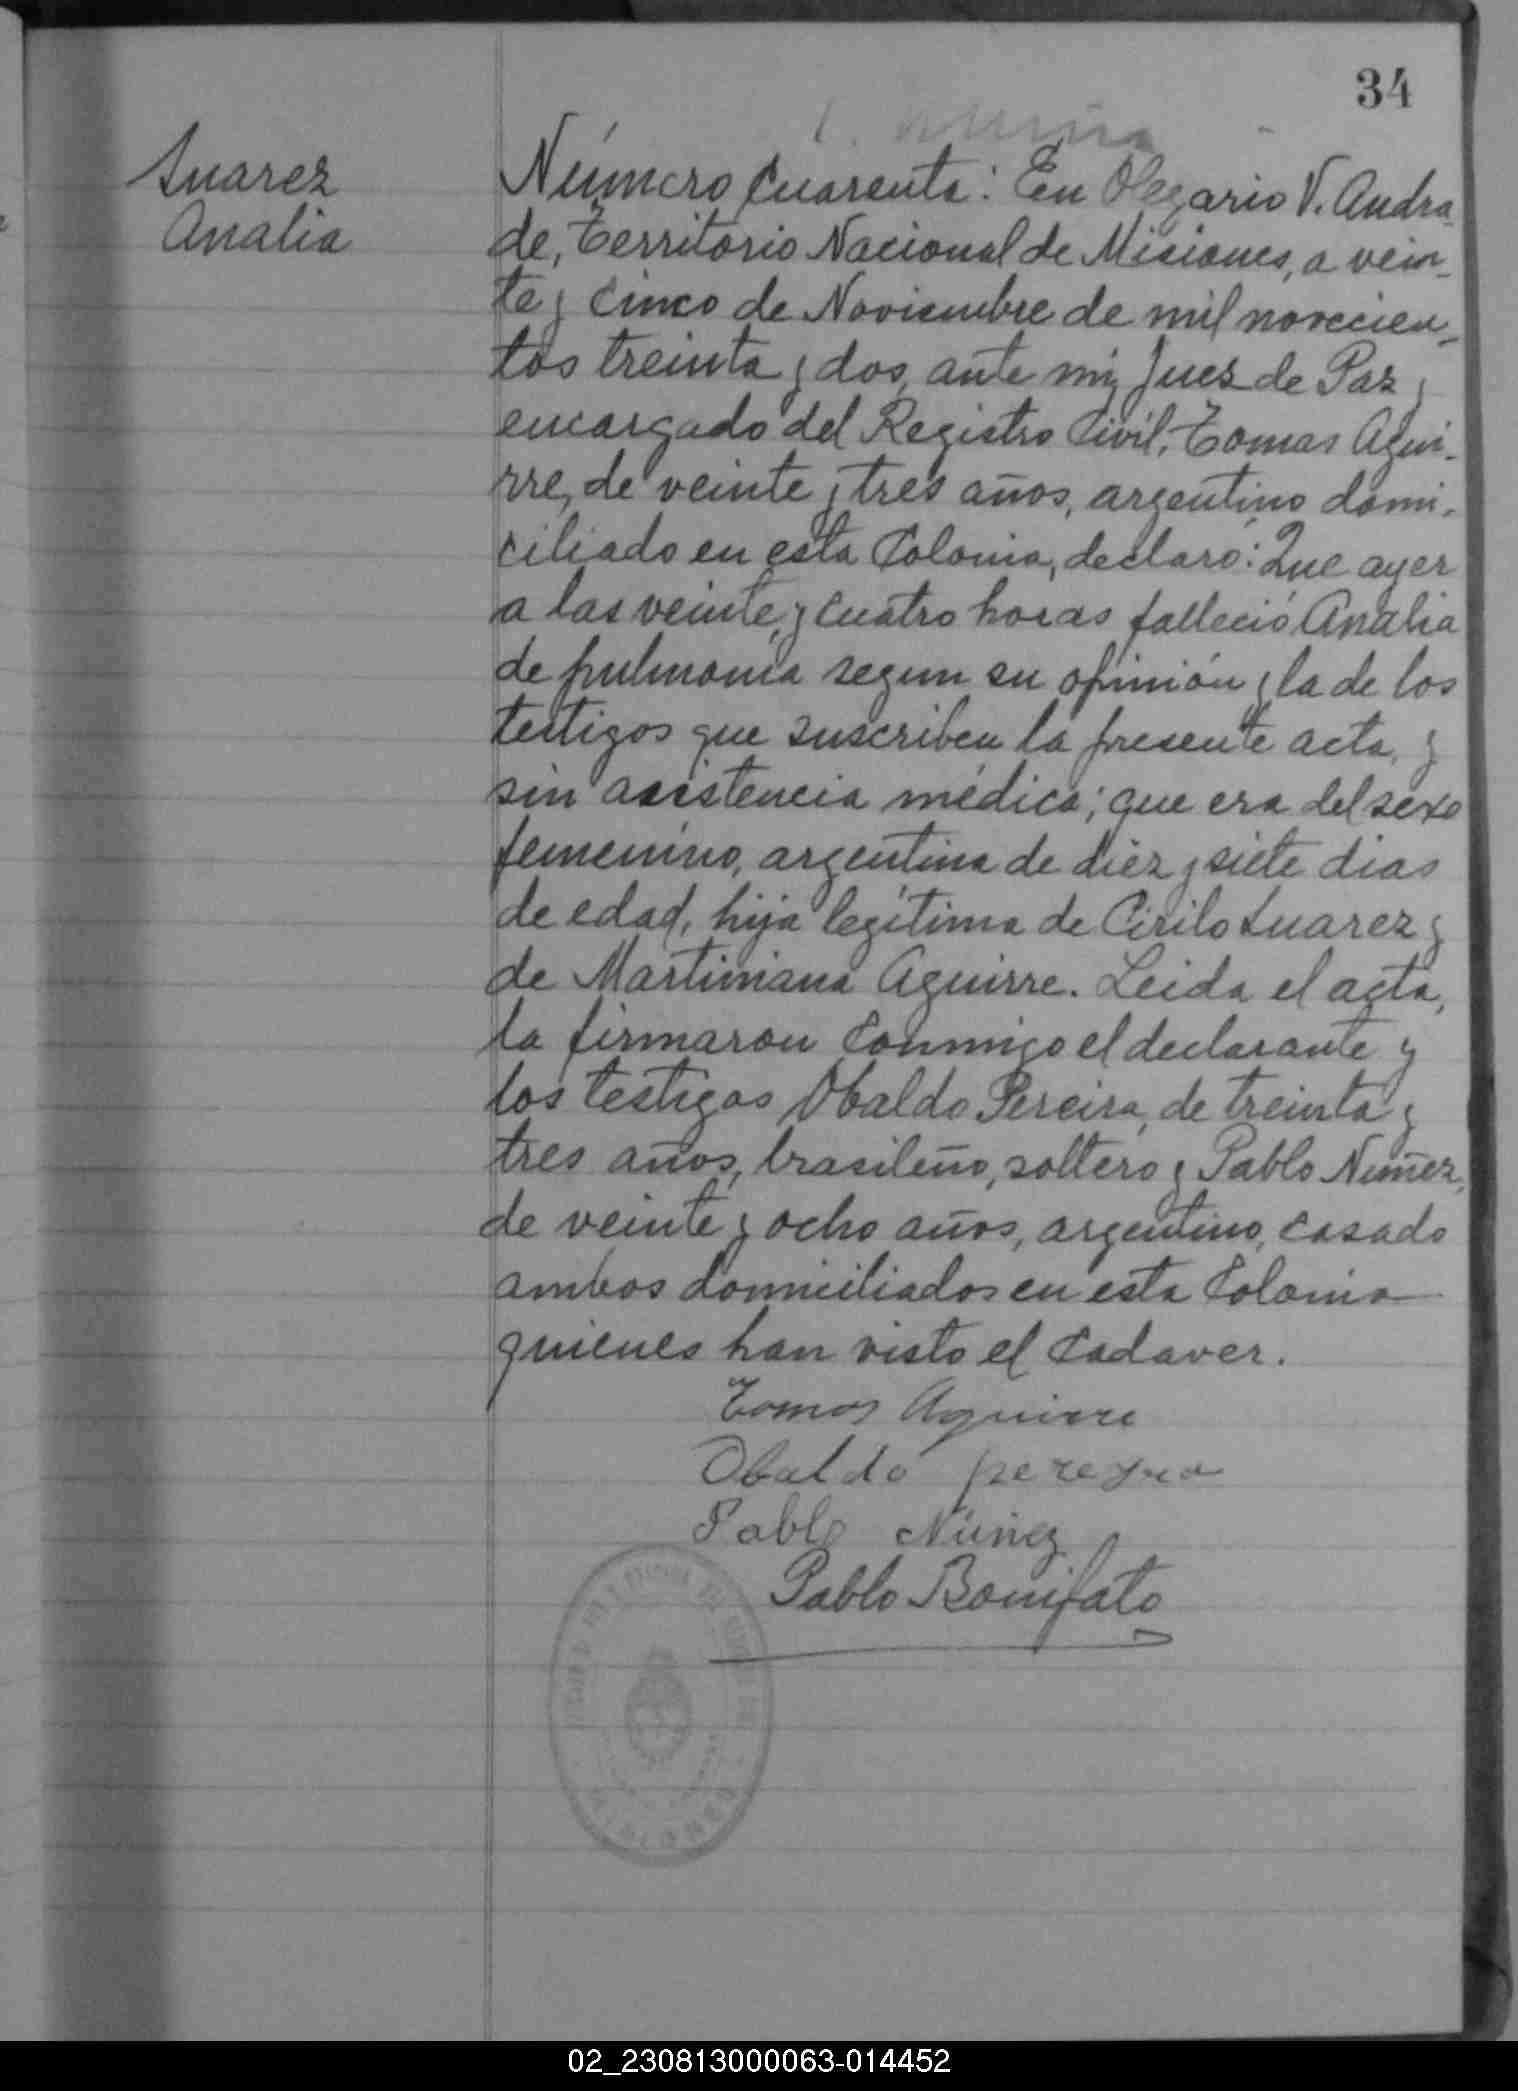 34
Suarez
Analia
Número Cuarenta: En Olegario V. Andra-
de, Territorio Nacional de Misiones, a vein-
te y cinco de Noviembre de mil novecien-
tos treinta y dos, ante mi, Juez de Paz y
encargado del Registro Civil, Tomas Agui-
rre, de veinte y tres años, argentino domi-
ciliado en esta Colonia, declaro: Que ayer
a las veinte y cuatro horas falleció Analia
de pulmonía segun su opinión y la de los
testigos que suscriben la presente acta, y
sin asistencia médica; que era del sexo
femenino, argentina de diez y siete dias
de edad, hija legítima de Cirilo Suarez y
de Martiniana Aguirre. Leida el acta,
la firmaron conmigo el declarante y
los testigos Obaldo Pereira, de treinta y
tres años, brasileño, soltero y Pablo Nuñez,
de veinte y ocho años, argentino, casado
ambos domiciliados en esta Colonia
quienes han visto el cadaver.
Tomas Aguirre
Obaldo pereyra
Pablo Núñez
Pablo Bonifato
MISIONES
02_230813000063-014452